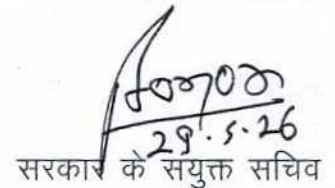 29.5.26
सरकार के सयुक्त सचिव